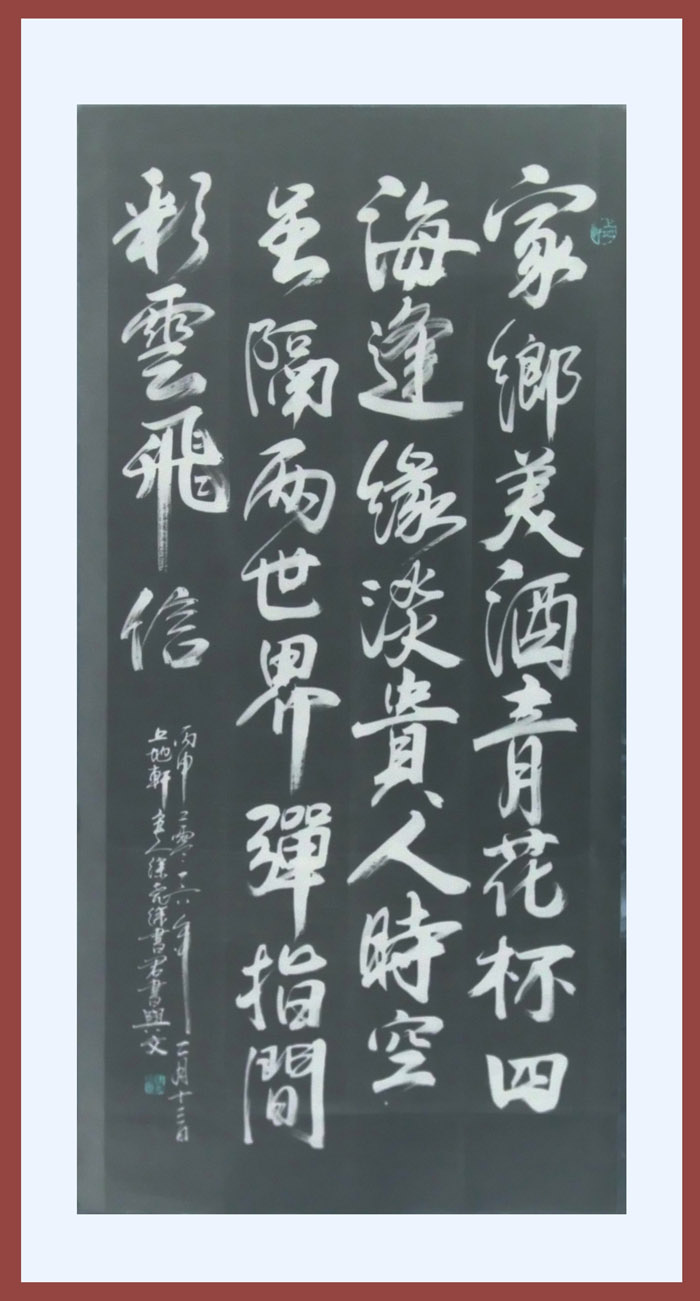 家鄉美酒青花杯四
海逢緣淡貴人時空
兰隔兩世界彈指間
彩雲飛信
丙申二零一六年一月十二日
上地軒主人徐 書君書與文